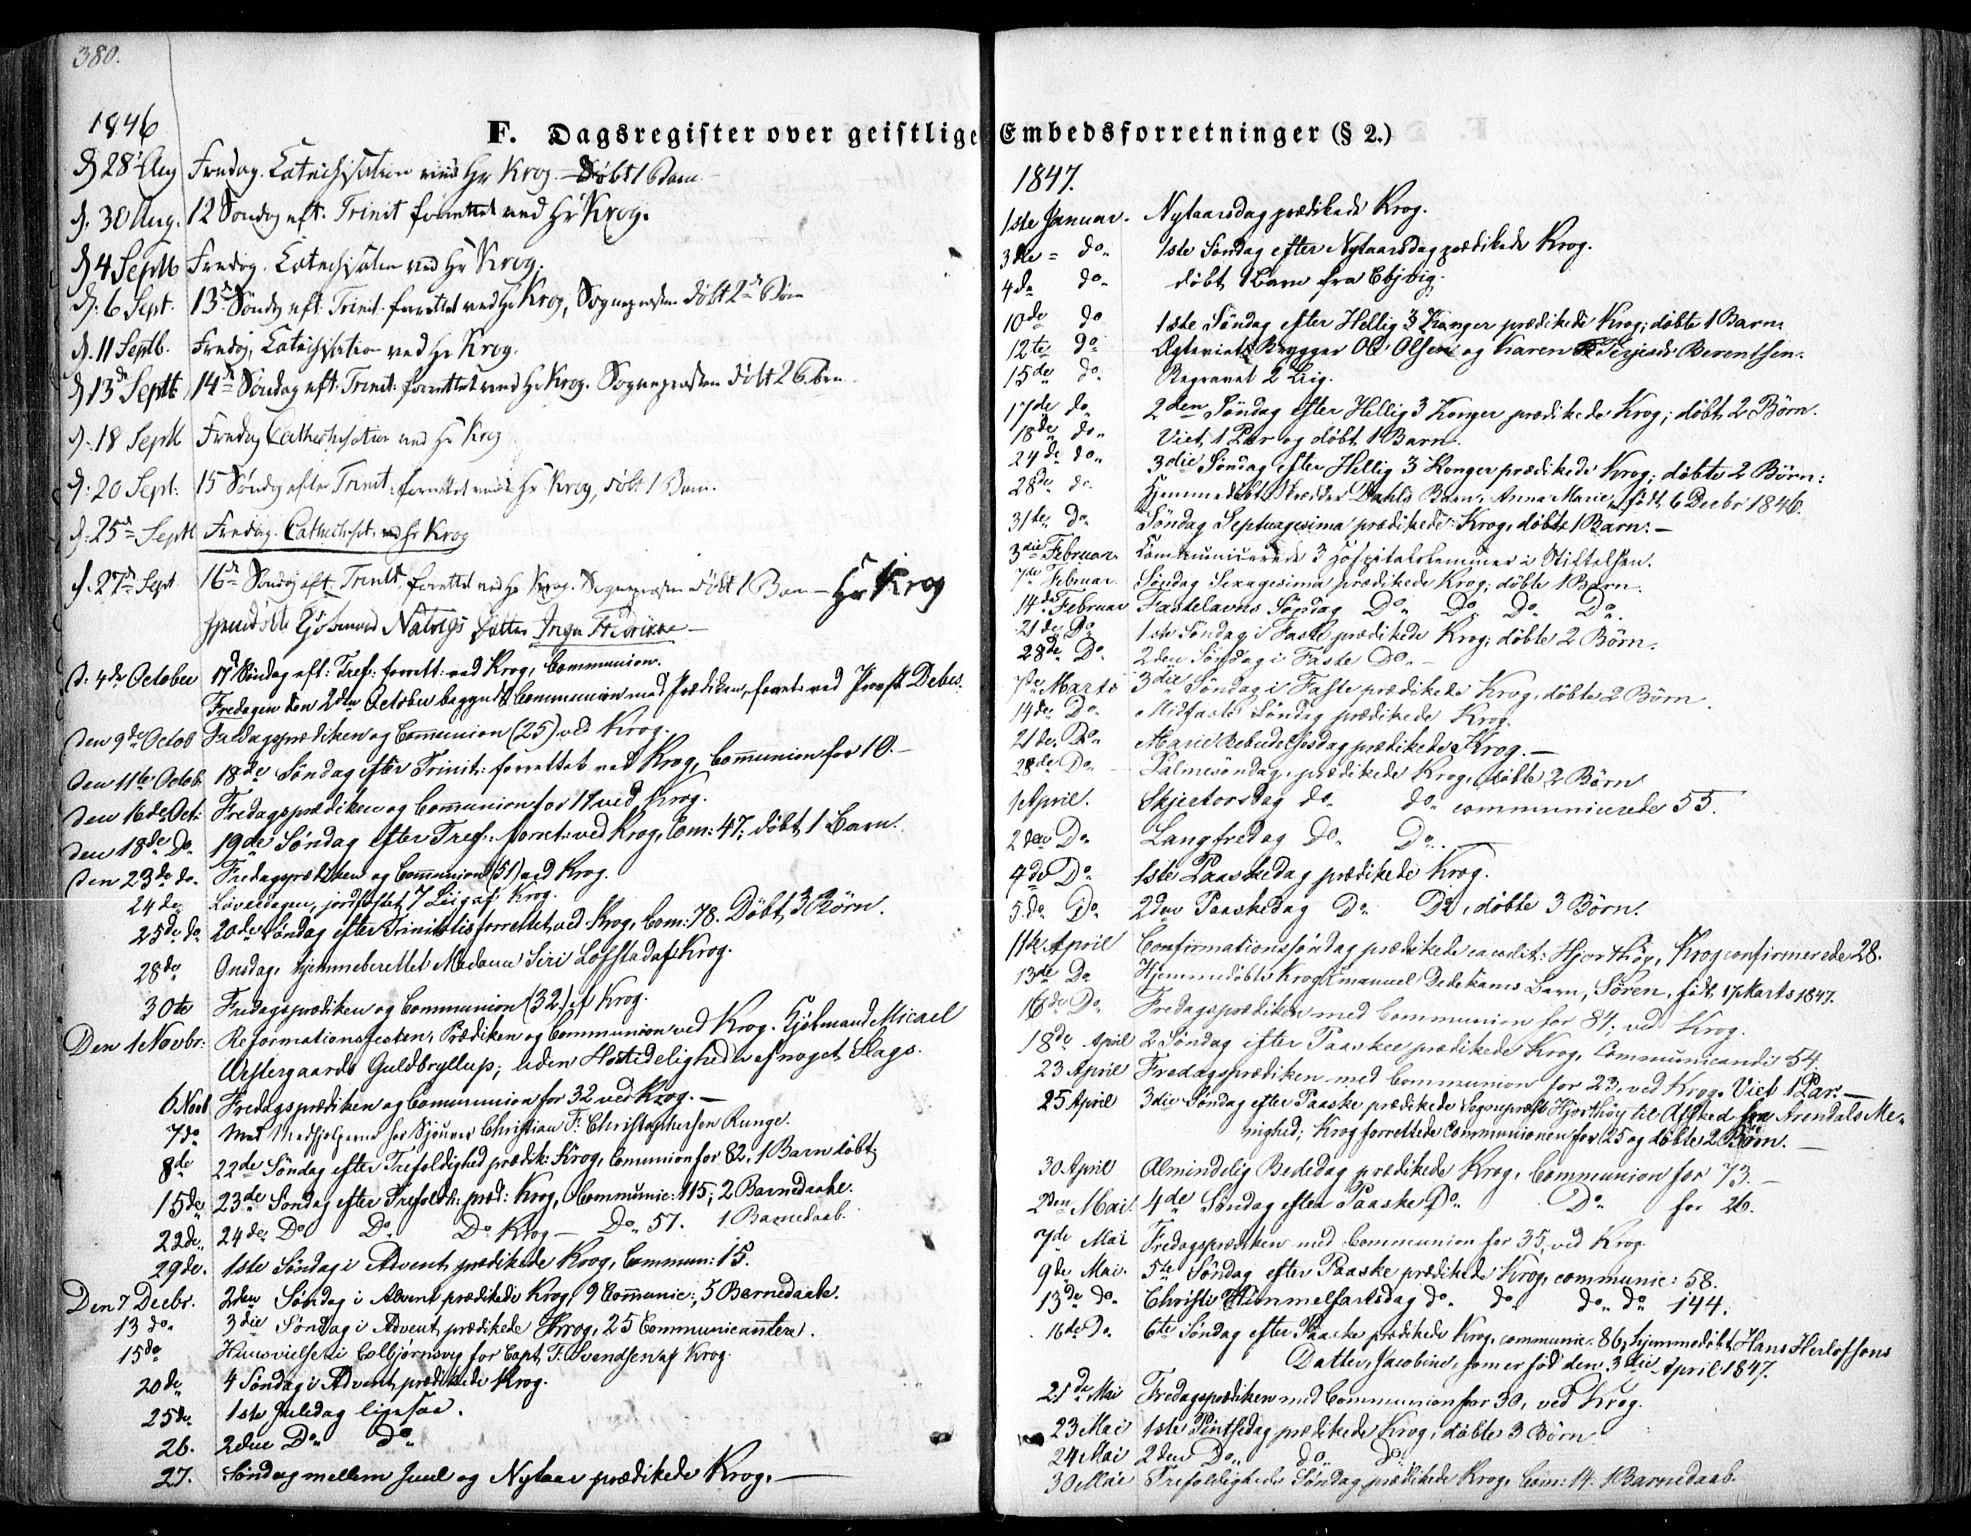 380.
F. Dagsregister over geistlige Embedsforretninger (§ 2.)
1846
d 28 Aug Fredag. Catechisation ved Hr Krog. — Døbt 1 Barn
d. 30 Aug. 12 Søndag eft. Trinit forrettet ved Hr Krog.
d 4 Septb Fredag. Catechisation ved Hr Krog.
d. 6 Sept. 13d Søndag eft. Trinit. forrettet ved Hr Krog, Sognepræsten døbt 2 Børn
d. 11 Septb. Fredag, Catechisation ved Hr Krog.
d 13de Septb 14d Søndag eft. Trinit. forrettet ved Hr Krog. Sognepræsten døbt 2 Børn
d. 18 Septb Fredag Catechisation ved Hr Krog
d: 20 Sept: 15 Søndag efter Trinit: forrettet ved Hr Krog, døbt 1 Barn.
d. 25d Septb Fredag. Catechisat. ved Hr Krog
d. 27d Sept 16d Søndag eft. Trinit. forrettet ved Hr Krog. Sognepræsten døbt 1 Barn — Hr Krog
hjemdøbte Kjøbmand Natvigs Datter Inga Fredrikke —
d. 4de October 17d Søndag eft: Tref: forrett: ved Krog, Communion.
Fredagen den 2den October begyndte Communion med Prædiken, forret: ved Provst Debes.
Den 9de Octob Fredagsprædiken og Communion (25) ved Krog.
Den 11te Octob. 18de Søndag efter Trinit: forrettet ved Krog, Communion for 10. —
Den 16de Oct: Fredagsprædiken og Communion for 17 ved Krog.
Den 18de Do. 19de Søndag efter Tref., forret: ved Krog, Com: 47; døbt 1 Barn.
Den 23de do. Fredagsprædiken og Communion (51) ved Krog.
24de Løverdagen, jordfæstet 7 Liig af Krog.
25de do 20de Søndag efter Trinitatis forrettet ved Krog, Com: 78. Døbt 3 Børn.
28de Onsdag, hjemmeberettet Madame Siri Løfstad af Krog.
30te Fredagsprædiken og Communion (32) af Krog.
Den 1 Novbr: Reformationsfesten, Prædiken og Communion ved Krog. Kjøbmand Micael
Arstergaards Guldbryllup; uden Høitidelighed af noget Slags.
6 Novb Fredagsprædiken og Communion for 32 ved Krog. —
7do Med Medhjelperne hos Skjønner Christian F: Christophersen Runge.
8de 22de Søndag efter Trefoldighed prædik: Krog, Communion for 82, 1 Barn døbt
15de 23de Søndag efter Trefoldh: præd: Krog, Communic: 115; 2 Barnedaabe.
22de 24de Do Do Do Krog — Do 57. 1 Barnedaab.
29de. 1ste Søndag i Advent prædikede Krog, Commun: 15.
Den 7 Decbr. 2den Søndag i Advent prædikede Krog, 9 Communic:, 5 Barnedaabe.
13 do. 3die Søndag i Advent prædikede Krog, 25 Communicantere.
15do Huusvielse i Colbjørnsvig for Capt. T: Svendsen af Krog.
20de 4 Søndag i Advent prædikede Krog.
25de 1ste Juledag ligesaa.
26. 2den Do do
27. Søndag mellem Juul og Nytaar prædikede Krog. —
1847.
1ste Januar. Nytaarsdag prædikede Krog.
3die = do. 1ste Søndag efter Nytaarsdag prædikede Krog.
4de do. døbt 1 Barn fra Ebjvig.
10de do 1ste Søndag efter Hellig 3 Konger prædikede Krog; døbte 1 Barn.
12te do Ægteviet Brygger Ole Olsen og Karen Terjesdr Berentsen.
15de do. Begravet 2 Liig.
17de do 2den Søndag efter Hellig 3 Konger prædikede Krog; døbt 2 Børn.
18de do. Viet 1 Par og døbt 1 Barn.
24de do. 3die Søndag efter Hellig 3 Konger prædikede Krog; døbte 2 Børn:
28de do. Hjemmedøbt Skrædder Dahls Barn, Anna Marie, født 6 Decbr 1846.
31te. Do. Søndag Septuagesima prædikede Krog, døbte 1 Barn. —
3die Februar. Communicerede 3 Hospitalslemmer i Stiftelsen.
7de Februar. Søndag Sexagesima prædikede Krog; døbte 1 Barn.
14de Februar Fastelavns Søndag Do. Do. Do. Do.
21de Do 1ste Søndag i Faste prædikede Krog; døbte 2 Børn.
28de Do. 2den Søndag i Faste Do. —
7de Marts 3die Søndag i Faste prædikede Krog, døbte 2 Børn.
14de Do. Midfaste Søndag prædikede Krog.
21de. Do. Marie Bebudelsesdag prædikede Krog. —
28de Do. Palmesøndag, prædikede Krog, døbte 2 Børn
1 April. Skjertorsdag do. do. communicerede 55.
2den Do. Langfredag Do. Do.
4de Do. 1ste Paaskedag prædikede Krog.
5.de Do. 2den Paaskedag Do. Do, døbte 3 Børn.
11te April Confirmationssøndag prædikede candit: Hjorthøy, Krog confirmerede 28.
13de Do Hjemmedøbte Krog Emanuel Dedekams Barn, Søren, født 17 Marts 1847.
16de Do. Fredagsprædiken med Communion for 84; ved Krog.
18de April 2 Søndag efter Paaske prædikede Krog, Communicande 54.
23 April Fredagsprædiken med Communion for 23, ved Krog. Viet 1 Par. —
25 April 3die Søndag efter Paaske prædikede Sognepræst Hjorthøy til Afsked fra Arendals Me-
nighed; Krog forrettede Communionen for 25 og døbte 2 Børn. —
30 April Almindelig Bededag prædikede Krog, Communion for 73. —
2den Mai. 4de Søndag efter Paaske Do. Do. for 26.
7de Mai Fredagsprædiken med Communion for 35, ved Krog.
9de Mai. 5te Søndag efter Paaske prædikede Krog, communic: 58.
13de do. Christi Himmelfartsdag do. do. do. do 144.
16de Do. 6te Søndag efter Paaske prædikede Krog. communic: 86, hjemmedøbt Hans Herlofsons
Datter, Jacobine, som er fød den 3die April 1847.
21de Mai Fredagsprædiken med Communion for 30, ved Krog.
23 Mai 1ste Pintsedag prædikede Krog; døbte 3 Børn.
24 Mai 2den Do. do. do.
30 Mai Trefoldigheds Søndag prædikede Krog, Com: 14. 1 Barnedaab.